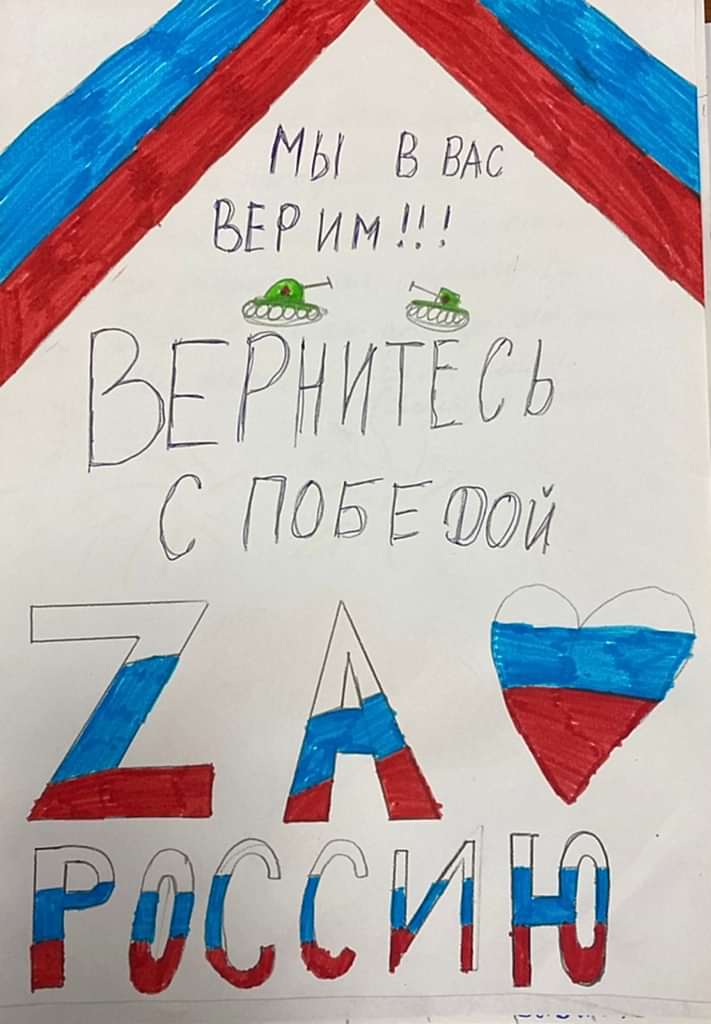 МЫ В ВАС
ВЕРИМ!!!
ВЕРНИТЕСЬ
С ПОБЕДОЙ
ZА
РОССИЮ